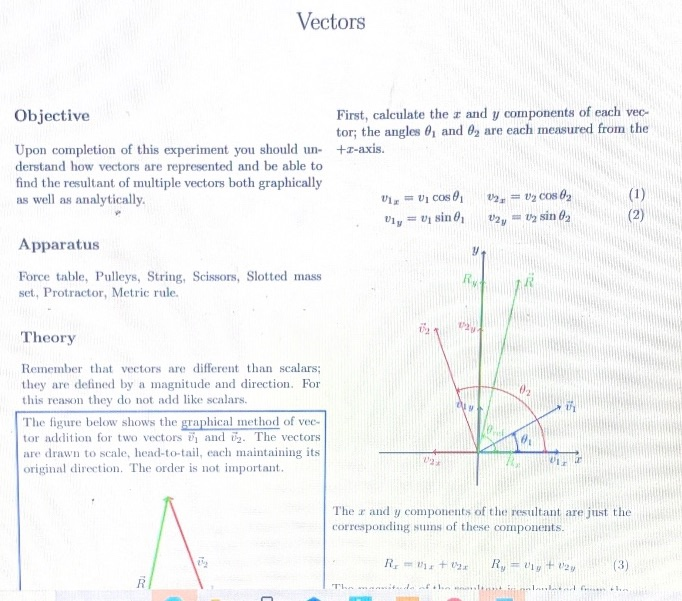 Vectors
Objective
Upon completion of this experiment you should un-
derstand how vectors are represented and be able to
find the resultant of multiple vectors both graphically
as well as analytically.
Apparatus
Force table, Pulleys, String, Scissors, Slotted mass
set, Protractor, Metric rule.
Theory
Remember that vectors are different than scalars;
they are defined by a magnitude and direction. For
this reason they do not add like scalars.
The figure below shows the graphical method of vec-
tor addition for two vectors v⃗₁ and v⃗₂. The vectors
are drawn to scale, head-to-tail, each maintaining its
original direction. The order is not important.
R⃗
v⃗₂
First, calculate the x and y components of each vec-
tor; the angles θ₁ and θ₂ are each measured from the
+x-axis.
v₁ₓ = v₁ cos θ₁ v₂ₓ = v₂ cos θ₂ (1)
v₁y = v₁ sin θ₁ v₂y = v₂ sin θ₂ (2)
y
Ry
R⃗
v⃗₂
v₂y
θ₂
v₁y
v⃗₁
θ₁
v₂ₓ
Rₓ
v₁ₓ
x
The x and y components of the resultant are just the
corresponding sums of these components.
Rₓ = v₁ₓ + v₂ₓ Ry = v₁y + v₂y (3)